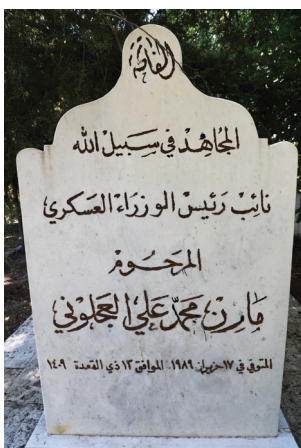 الفاتحة
المجاهد في سبيل الله
نائب رئيس الوزراء العسكري
المرحوم
مازن محمد علي العجلوني
المتوفي في ١٧ حزيران ١٩٨٩ الموافق ١٣ ذي القعدة ١٤٠٩